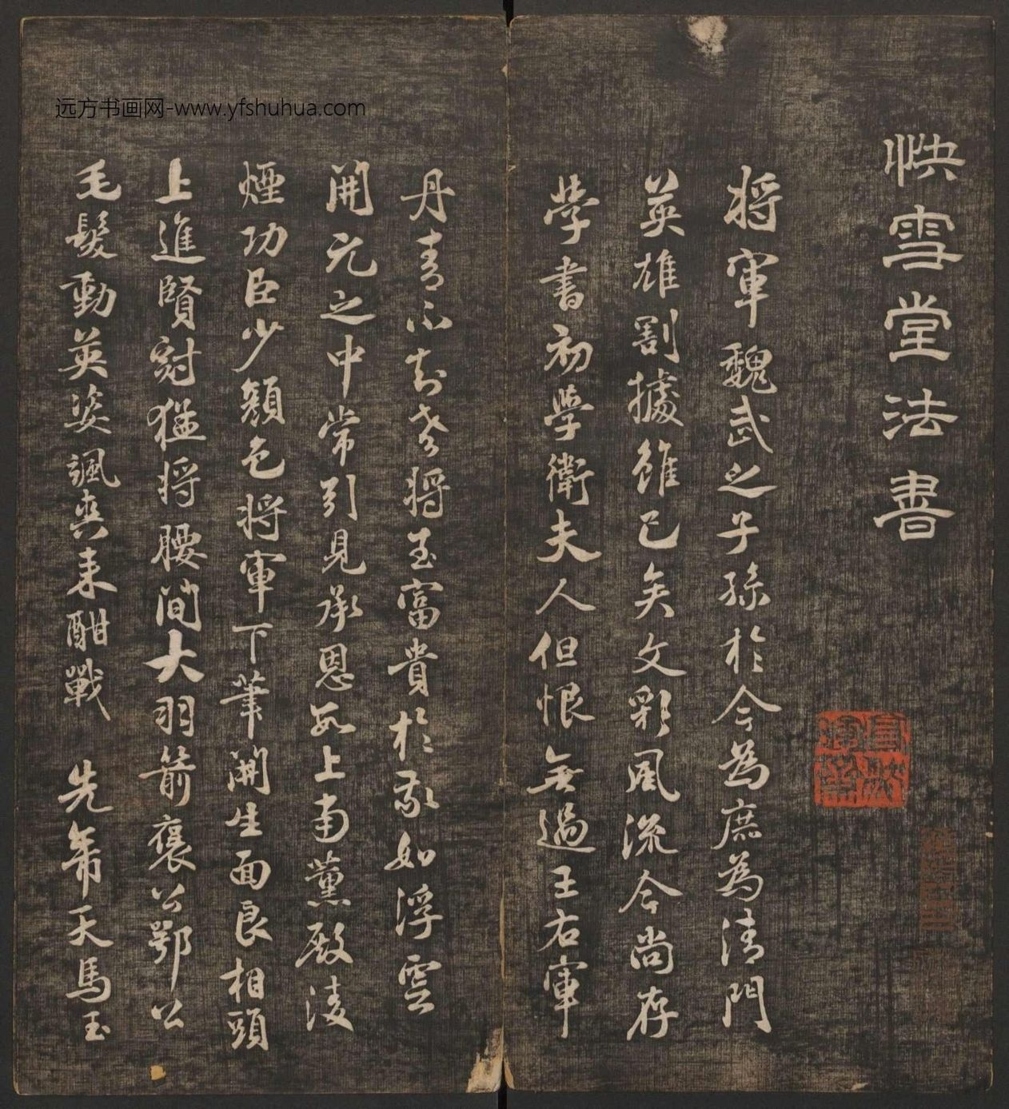 远方书画网-www.yfshuhua.com
快雪堂法書
将軍魏武之子孫於今為庶為清門
英雄割據雖已矣文彩風流今尚存
學書初學衛夫人但恨無過王右軍
丹青不知老将至富貴於我如浮雲
開元之中常引見承恩數上南薰殿淩
煙功臣少顏色将軍下筆開生面良相頭
上進賢冠猛将腰間大羽箭褒公鄂公
毛髮動英姿颯爽来酣戰 先帝天馬玉